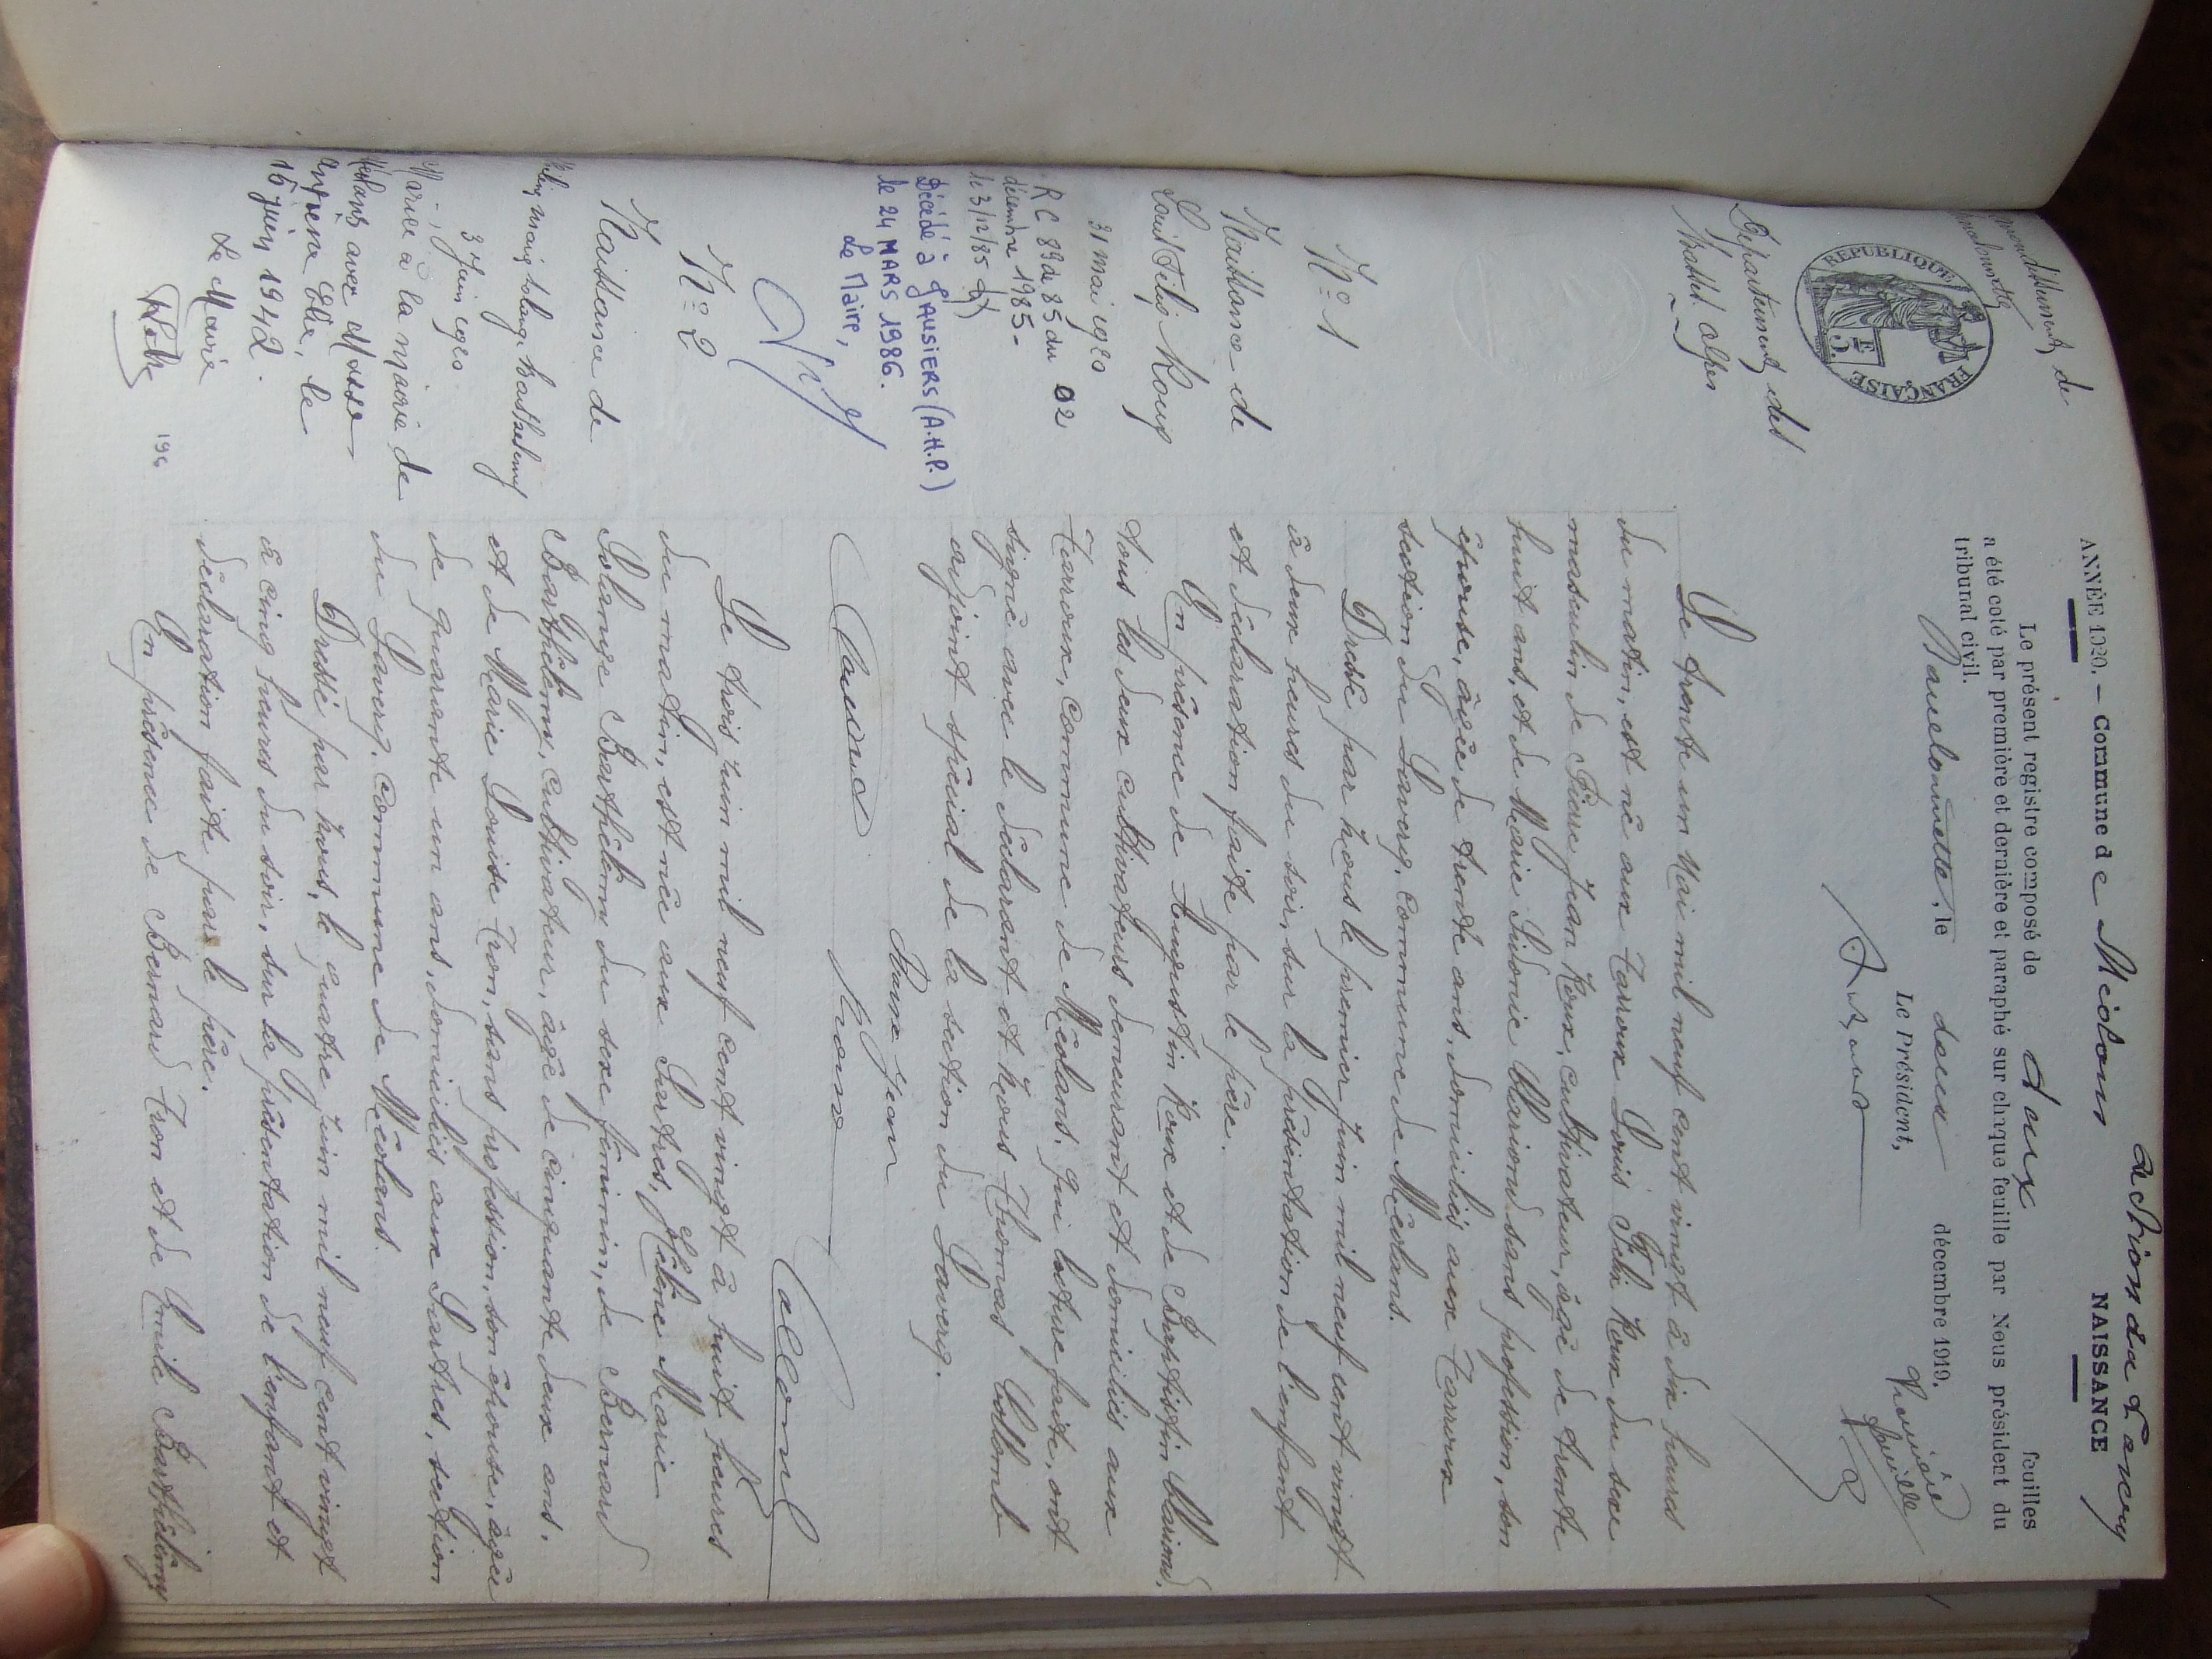 section du Laverq
ANNÉE 1920. — Commune de Méolans NAISSANCE
Arrondissement de
Barcelonnette
Le présent registre composé de deux feuilles
a été coté par première et dernière et paraphé sur chaque feuille par Nous président du
tribunal civil.
Barcelonnette, le deux décembre 1919.
Le Président,
Première
feuille
RÉPUBLIQUE FRANÇAISE
Département des
Basses Alpes
N° 1
Naissance de
Louis Félix Roux
31 mai 1920
RC 89 du 85 du 02
décembre 1985 -
le 3/12/85
Décédé à JAUSIERS (A.H.P.)
le 24 MARS 1986.
Le Maire,
Le trente un Mai mil neuf cent vingt à dix heures
du matin, est né aux Tarroux Louis Félix Roux du sexe
masculin de Pierre Jean Roux, cultivateur, âgé de trente
huit ans, et de Marie Sidonie Mariaud sans profession, son
épouse, âgée de trente ans, domiciliés aux Tarroux
section du Laverq, commune de Méolans.
Dressé par nous le premier Juin mil neuf cent vingt
à deux heures du soir, sur la présentation de l'enfant
et déclaration faite par le père.
En présence de Augustin Roux et de Baptistin Mariaud,
tous les deux cultivateurs demeurant et domiciliés aux
Tarroux, commune de Méolans, qui lecture faite, ont
signé avec le déclarant et nous Thomas Collomb
adjoint spécial de la section du Laverq.
Roux Jean
Roux
Collomb
N° 2
Naissance de
Hélène Marie Solange Barthélemy
3 Juin 1920
Mariée à la mairie de
Méolans avec Masse
Elie, le
16 juin 1942.
Le Maire
196
Le trois Juin mil neuf cent vingt à huit heures
du matin, est née aux Sartres, Hélène Marie
Solange Barthélemy du sexe féminin, de Bernard
Barthélemy, cultivateur, âgé de cinquante deux ans,
et de Marie Louise Tron, sans profession, son épouse, âgée
de quarante un ans, domiciliés aux Sartres, section
du Laverq, commune de Méolans.
Dressé par nous, le quatre Juin mil neuf cent vingt
à cinq heures du soir, sur la présentation de l'enfant et
déclaration faite par le père.
En présence de Bernard Tron et de Emile Barthélemy